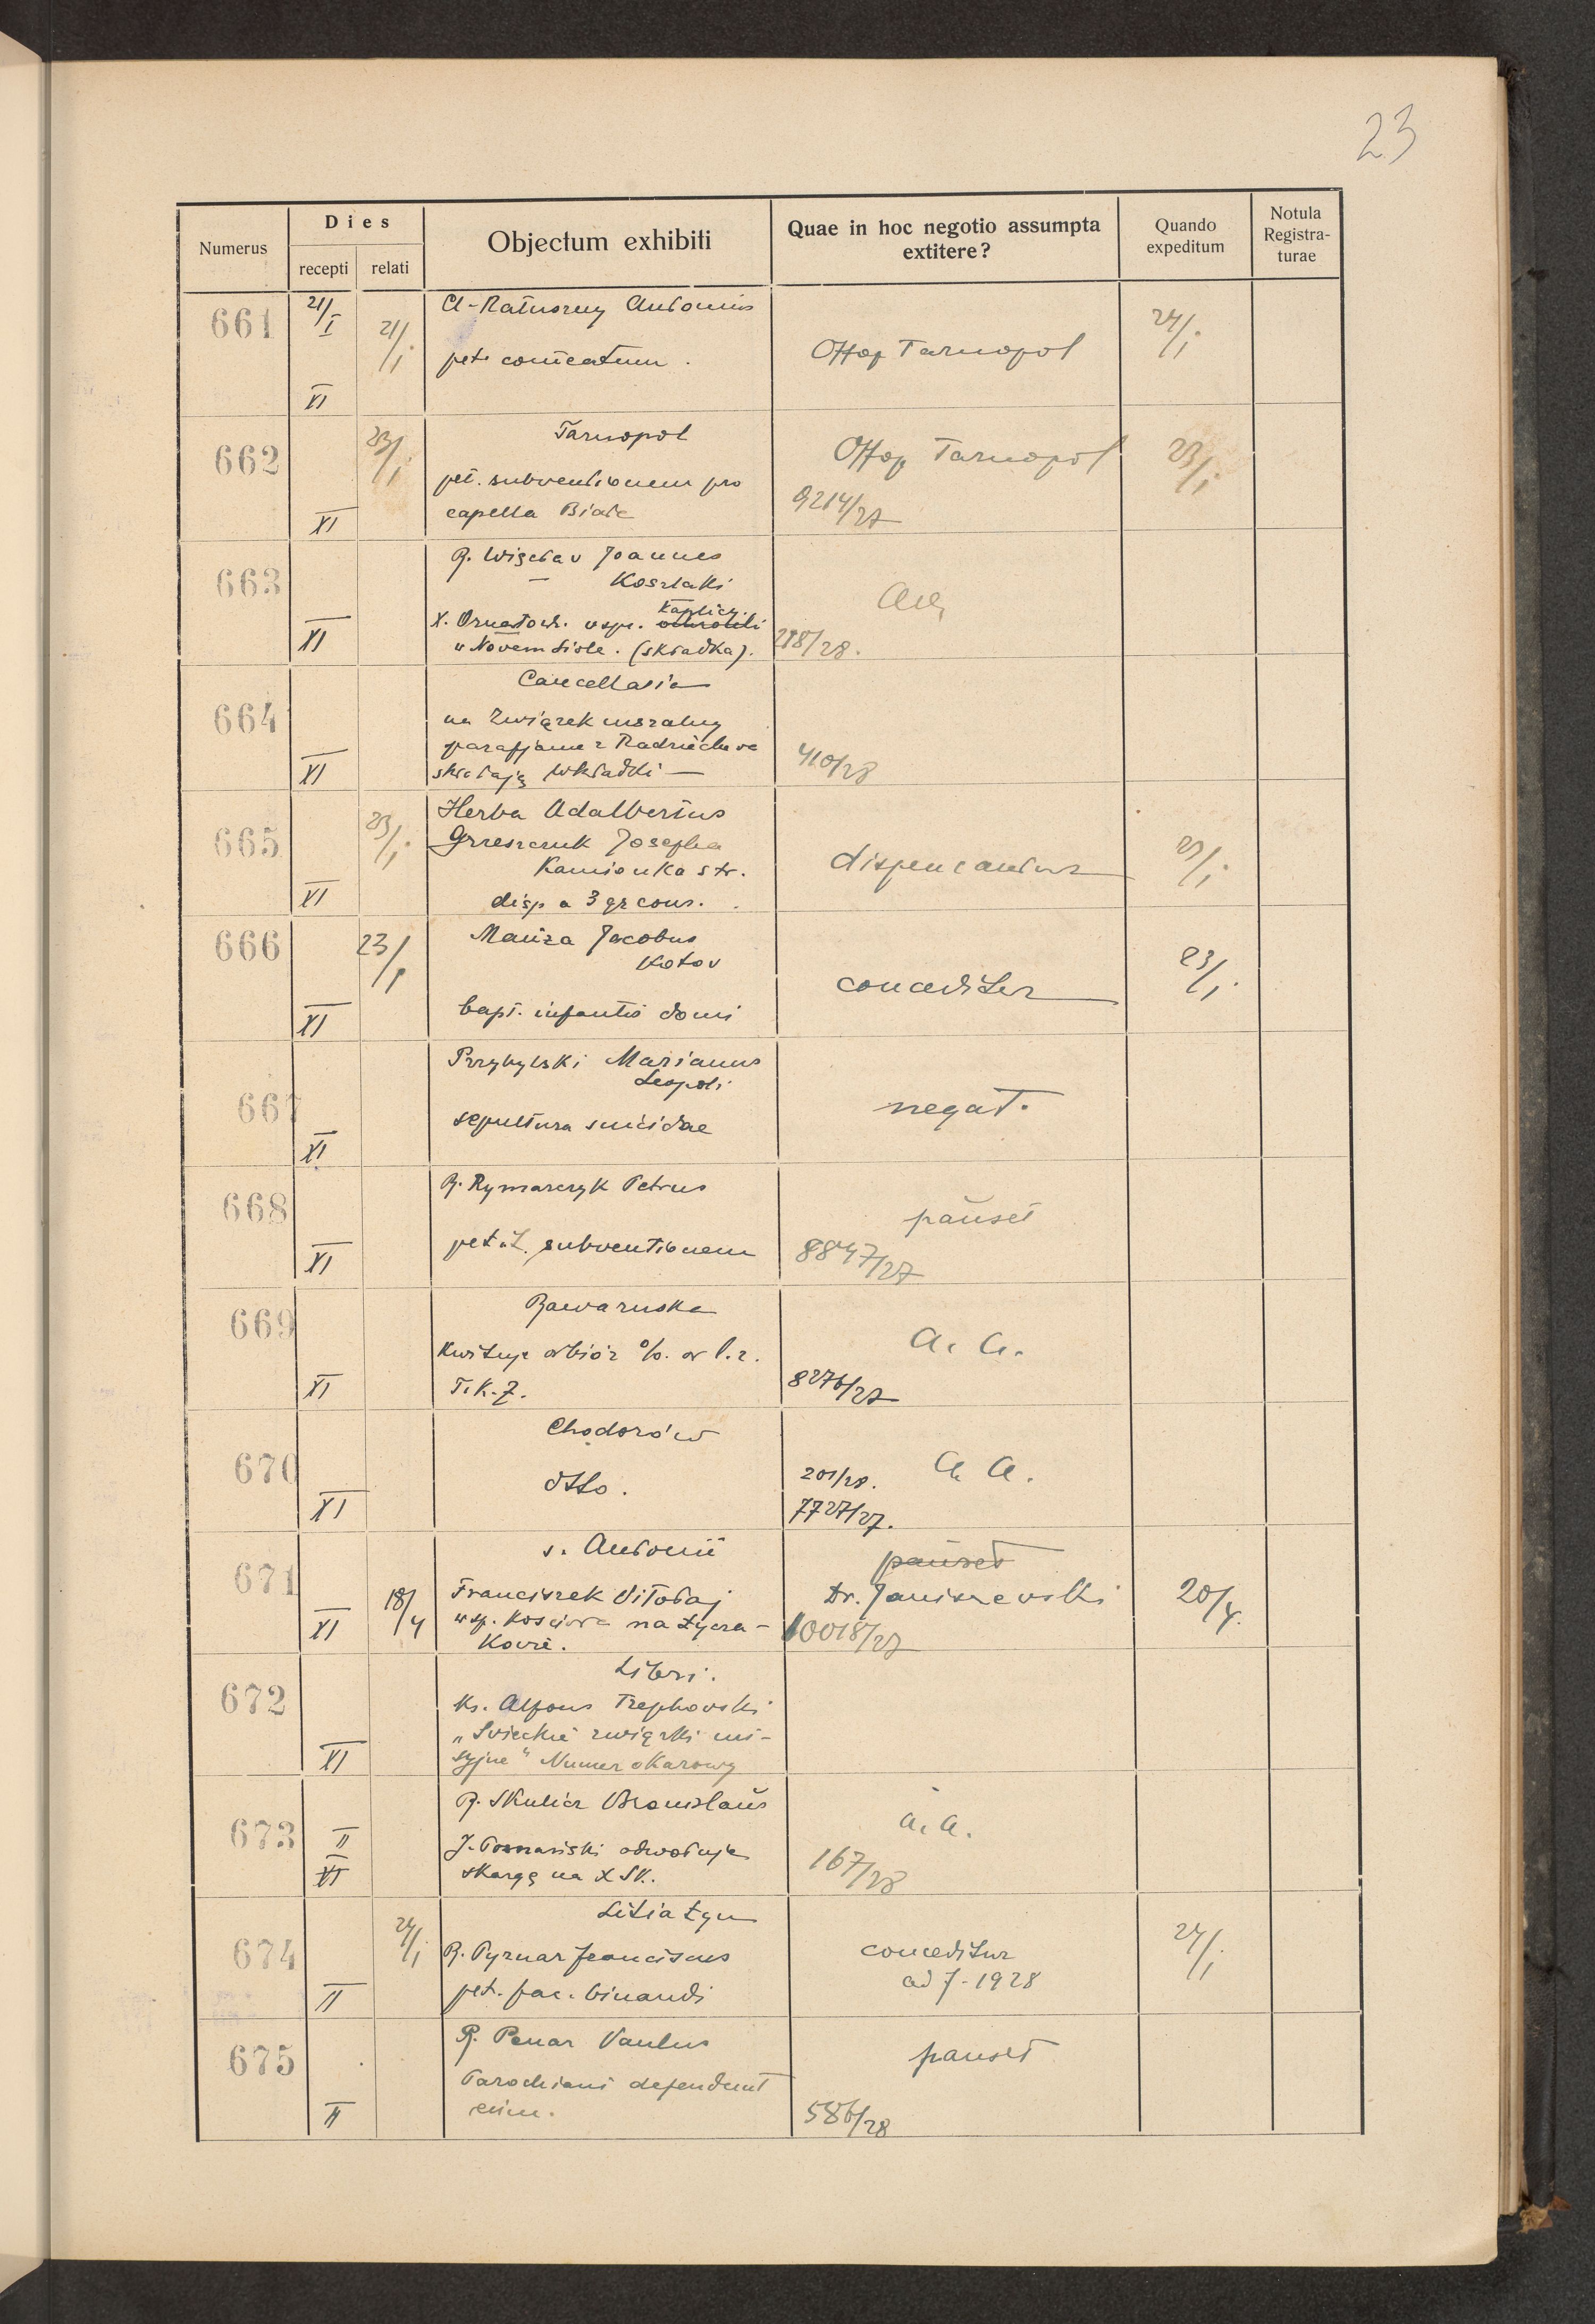 23
Numerus
Dies
recepti
relati
Objectum exhibiti
Quae in hoc negotio assumpta
extitere?
Quando
expeditum
Notula
Registra-
turae
661
21/I
XI
21/i
Antonius
pet.
Tarnopol
24/i
662
XI
23/i
Tarnopol
pet. subventionem pro
capella Biała
Tarnopol
9214/27
23/i
663
XI
Joannes
Koszlaki
kaplicy
(składka).
218/28.
664
XI
Cancellaria
na Związek mszalny
parafjanie z Radziechowa
składają wkładki —
410/28
665
XI
23/i
Herba Adalbertus
Grzeszczuk Josepha
Kamionka str.
disp a 3 gr cons.
dispensantur
23/i
666
XI
23/i
Jacobus
Kotov
bapt. infantis domi
conceditur
23/i
667
XI
Przybylski Marianus
Leopoli
sepultura suicidae
negat.
668
XI
R. Rymarczyk Petrus
pet. subventionem
pauset
8847/27
669
XI
Rawa ruska
kwituje odbiór %. or l. z.
T. K. Z.
a. a.
8276/27
670
XI
Chodorów
dtto.
201/28.
a. a.
7727/27.
671
XI
18/4
s. Antonii
Franciszek Witołaj
wsp. kościoła na Łycza-
kowie.
pauset
Dr. Janiszewski
10018/27
20/4.
672
XI
Libri.
Ks. Alfons
"Świeckie związki mi-
syjne" Numer okazowy
673
II
XI
R. Skulicz Bronislaus
J. Poznański odwołuje
skargę na X Sk.
a. a.
167/28
674
II
24/i
Litiatyn
R. Pyznar Franciscus
pet. fac. binandi
conceditur
ad f. 1928
24/i
675
II
R. Penar Paulus
Parochiani defendunt
eum.
pauset
586/28